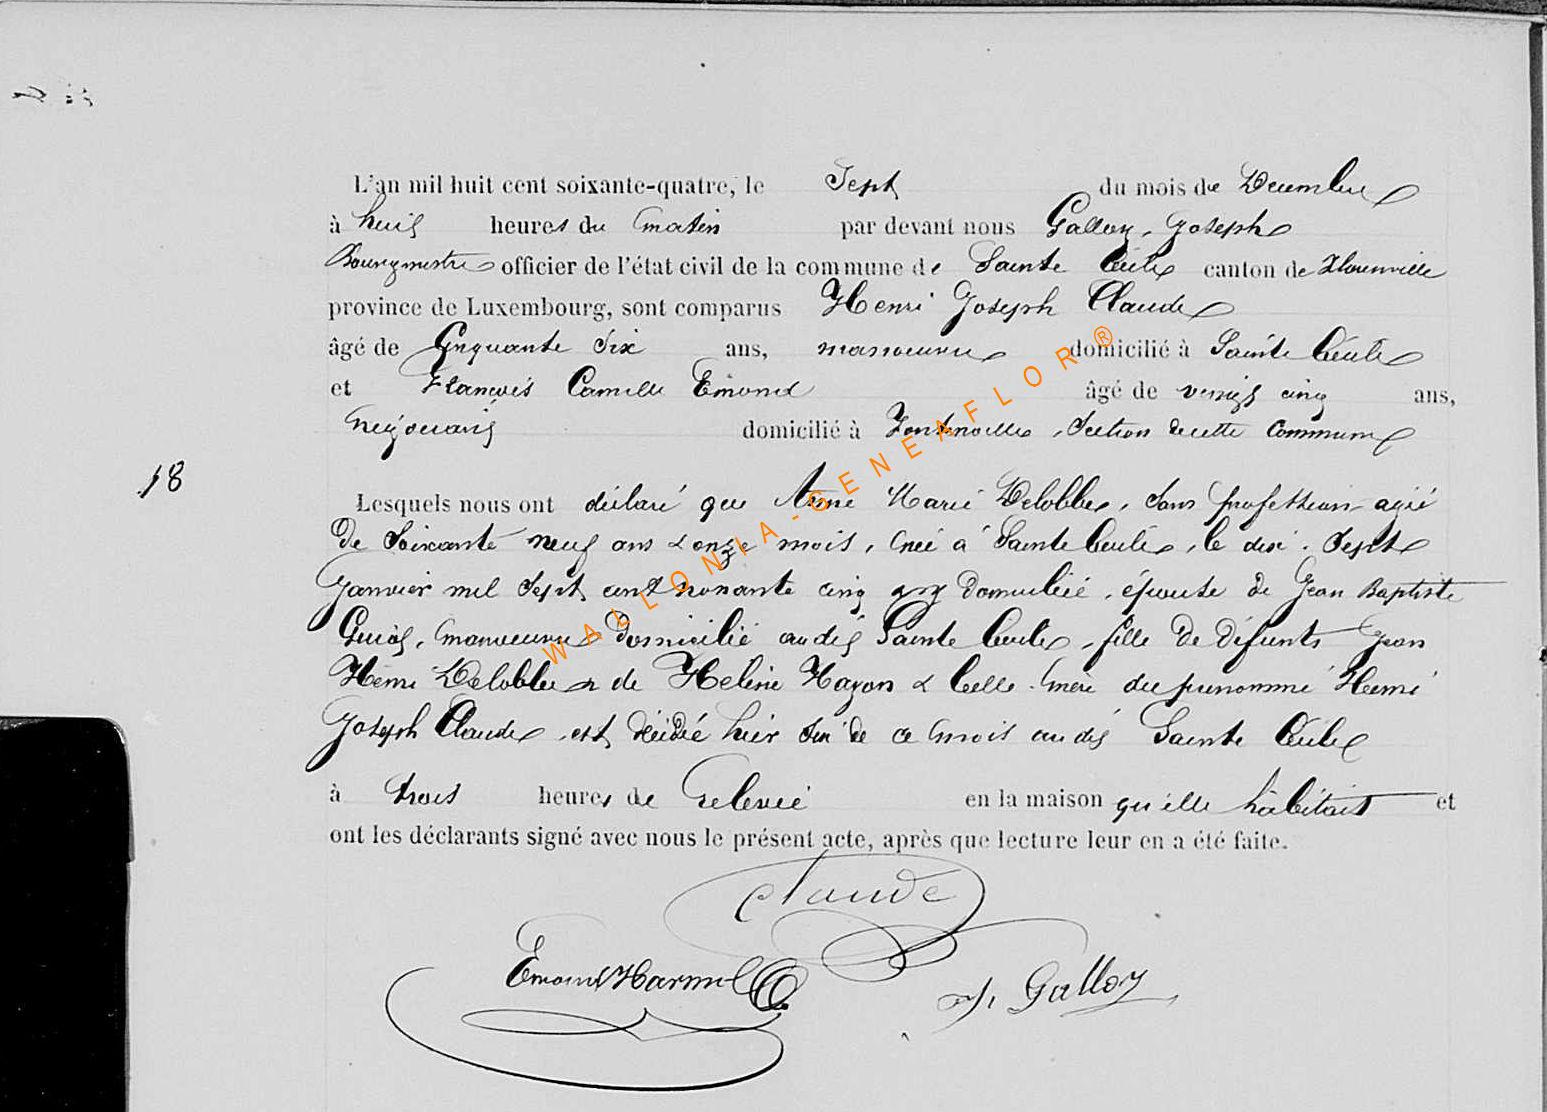 L'an mil huit cent soixante-quatre, le Sept du mois de Décembre
à huit heures du matin par devant nous Galloy, Joseph
Bourgmestre officier de l'état civil de la commune de Sainte Cécile canton de Florenville
province de Luxembourg, sont comparus Henri Joseph Claude
âgé de Cinquante Six ans, manoeuvre domicilié à Sainte Cécile
et François Camille Emond âgé de vingt cinq ans,
négociant domicilié à Fontenoille, Section de cette Commune
18
Lesquels nous ont déclaré que Anne Marie Delobbe, Sans profession agée
de Soixante neuf ans & onze mois, née à Sainte Cécile, le dix-Sept
Janvier mil Sept cent nonante cinq y domiciliée, épouse de Jean Baptiste
manoeuvre domicilié audit Sainte Cécile, fille de défunts Jean
Henri Delobbe & de Helène Hazon & belle-mère du prénommé Henri
Joseph Claude, est décédé hier Six de ce mois audit Sainte Cécile
à trois heures de relevée en la maison qu'elle habitait et
ont les déclarants signé avec nous le présent acte, après que lecture leur en a été faite.
Claude
Emond Harmel
J. Galloy
WALLONIA-GENEAFLOR®